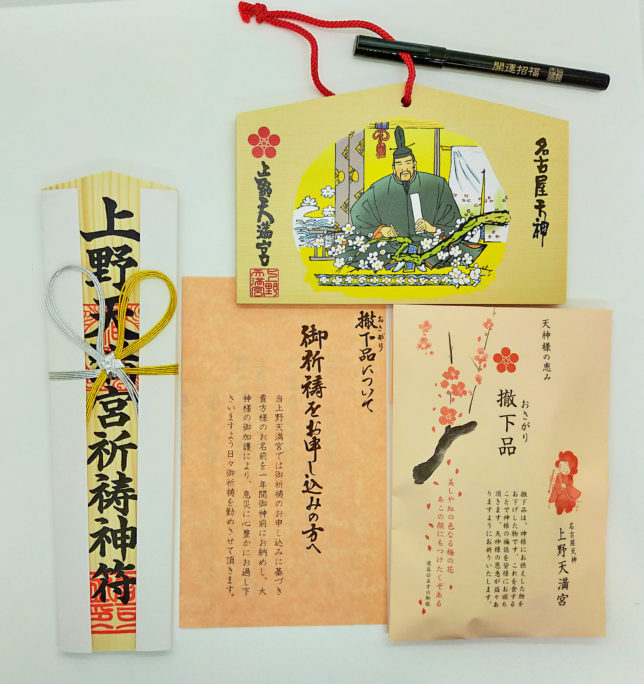 開運招福
名古屋天神
上野天満宮
上野天満宮
上野天満宮祈祷神符
撤下品について
おさがり
御祈祷をお申し込みの方へ
当上野天満宮では御祈祷のお申し込みに基づき
貴方様のお名前を一年間御神前にお納めし、大
神様の御加護により、息災に心豊かにお過し下
さいますよう日々御祈祷を勤めさせて頂きます。
天神様の恵み
おさがり
撤下品
撤下品は、神様にお供えした物を
お下げした物です。これを食する
ことで神様の福徳を皆様にお頒ち
頂きます。天神様の恩恵が益々あ
りますようにお祈りいたします。
美しや紅の色なる梅の花
あこの顔にもつけたくぞある
道真公五才の御歌
名古屋天神
上野天満宮